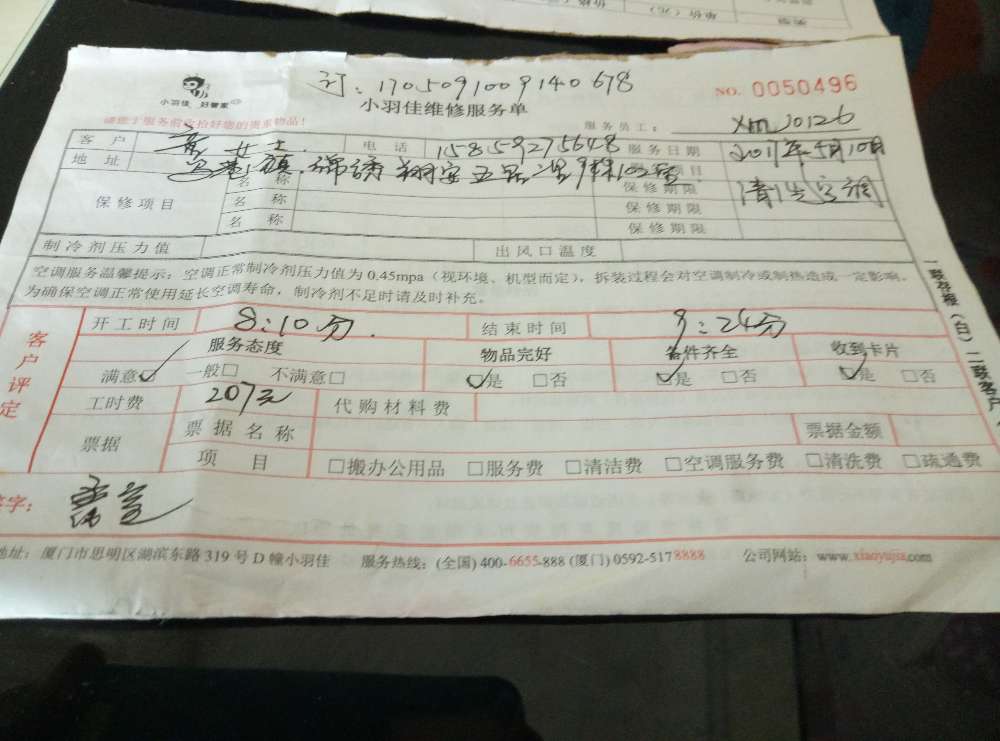 订：1705091009140678
小羽佳 好管家
NO. 0050496
小羽佳维修服务单
请您于服务前收拾好您的贵重物品！
服务员工： xm J0126
客户 女士 电话 15859275648 服务日期 2017年5月10日
地址 项目 清洗空调
保修项目 名称 保修期限
名称 保修期限
名称 保修期限
制冷剂压力值 出风口温度
空调服务温馨提示：空调正常制冷剂压力值为0.45mpa（视环境、机型而定），拆装过程会对空调制冷或制热造成一定影响，
为确保空调正常使用延长空调寿命，制冷剂不足时请及时补充。
客户评定
开工时间 8:10分 结束时间 9:24分
服务态度 物品完好 备件齐全 收到卡片
满意☑ 一般□ 不满意□ ☑是 □否 ☑是 □否 ☑是 □否
工时费 207元 代购材料费
票据 票据名称 票据金额
项目 □搬办公用品 □服务费 □清洁费 □空调服务费 □清洗费 □疏通费
签字：
地址：厦门市思明区湖滨东路319号D幢小羽佳 服务热线：(全国)400-6655-888 (厦门)0592-5178888 公司网站：www.xiaoyujia.com
一联存根（白）二联客户